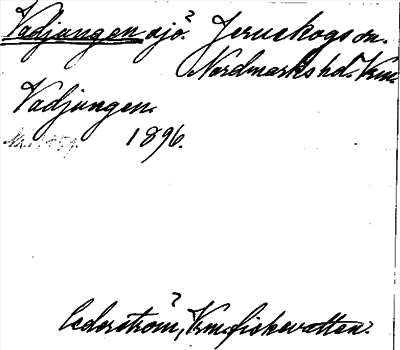 Vadjungen sjö? Järnskogs sn.
Nordmarks hd. Vrm.
Vadjungen.
1896.
Cederström?, Vrm. fiskevatten.